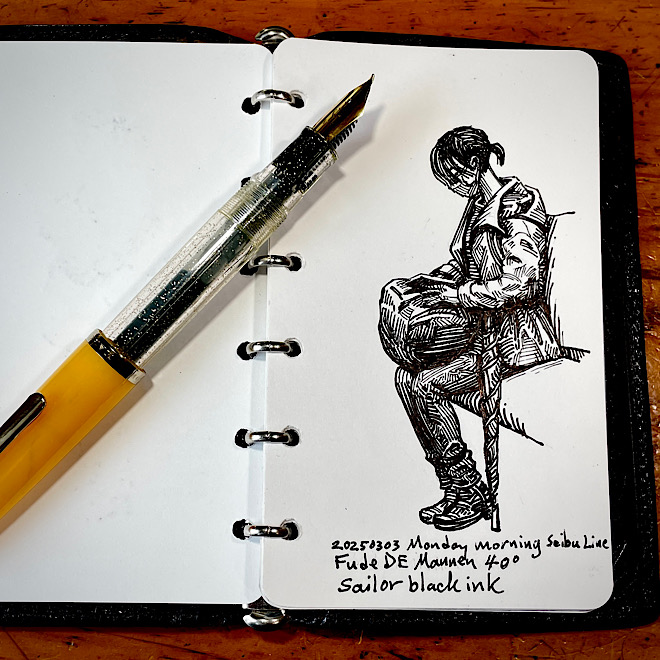 20250303 Monday morning Seibu Line
Fude DE Mannen 40°
Sailor black ink